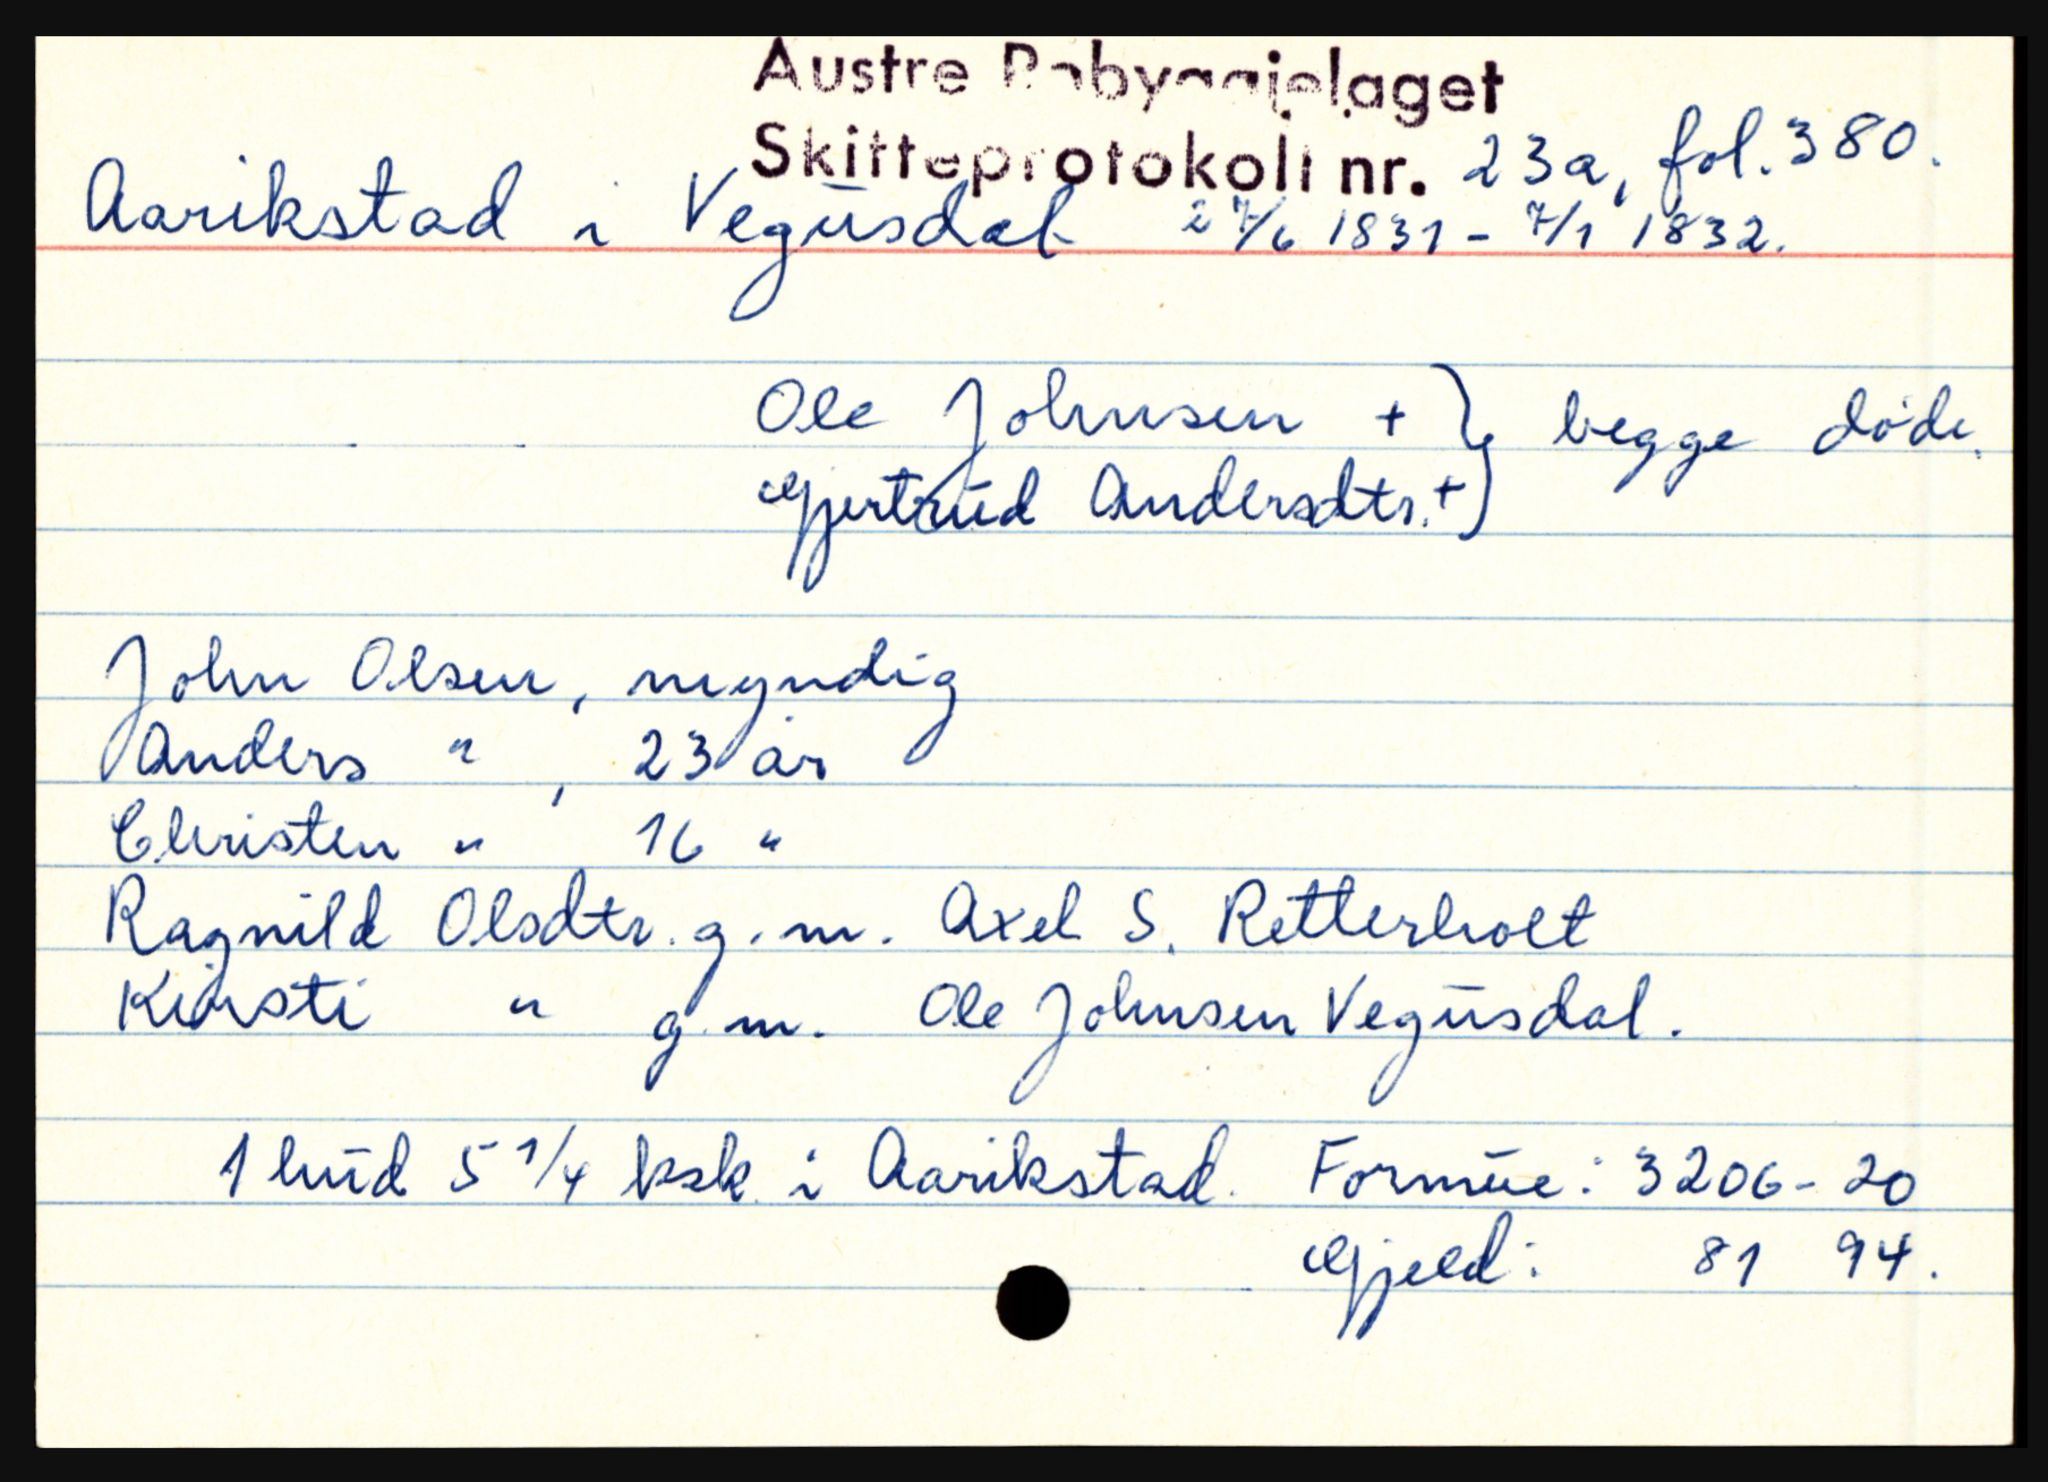 Austre Robyggjelaget
Skifteprotokoll nr. 23a, fol. 380.
Aarikstad i Vegusdal 27/6 1831 - 7/1 1832.
Ole Johnsen + } begge døde.
Gjertrud Andersdtr. +
John Olsen, myndig
Anders " , 23 år
Christen " 16 "
Ragnild Olsdtr. g.m. Axel S. Retterholt
Kirsti " g.m. Ole Johnsen Vegusdal.
1 hud 5 1/4 ksk. i Aarikstad. Formue: 3206 - 20
Gjeld: 81 94.